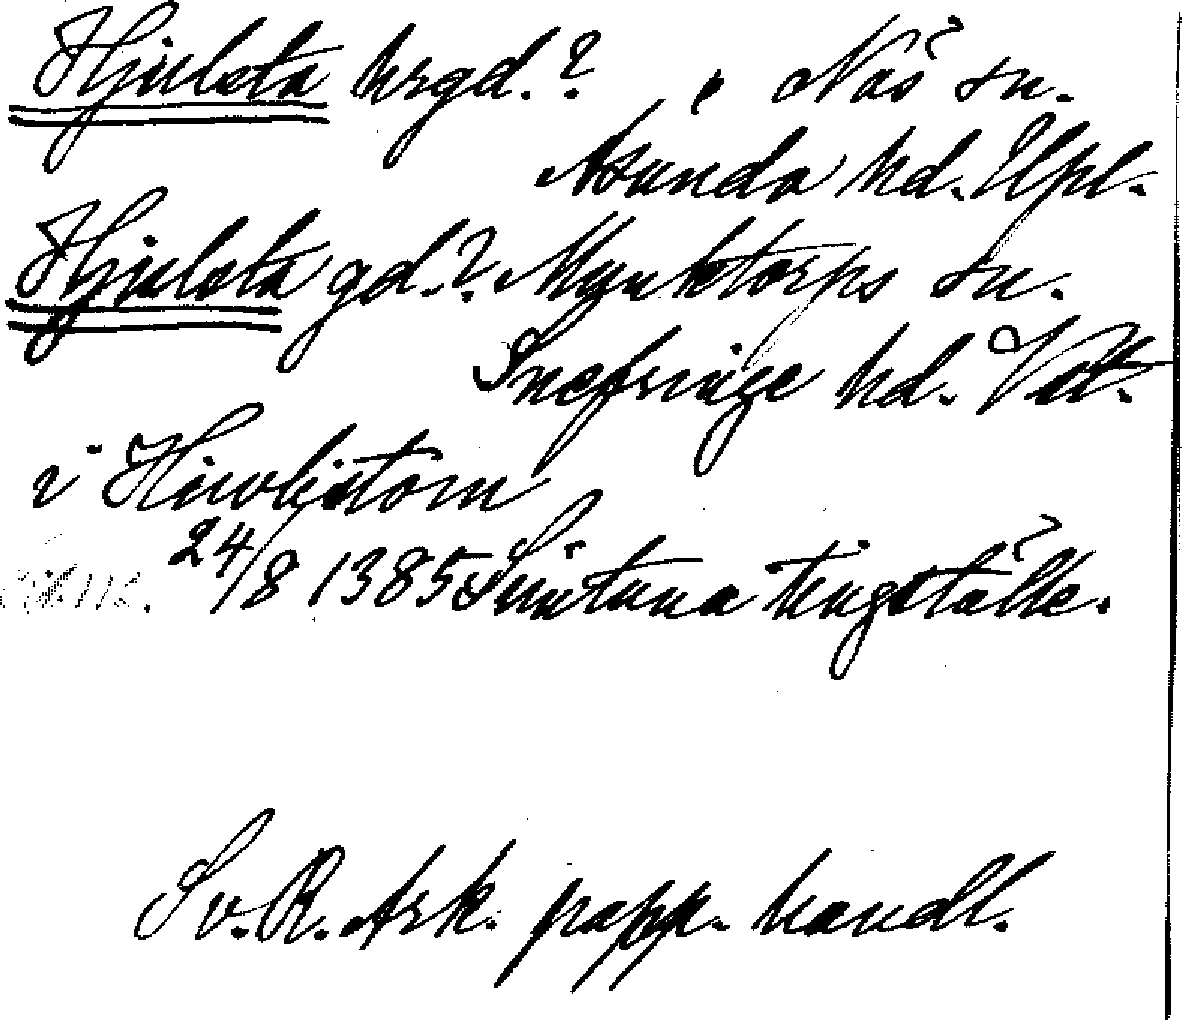 Hjulsta hrgd.? , Näs sn.
Åsunda hd. Upl.
Hjulsta gd.? Munktorps sn.
Snefringe hd. Vstl.
i Hiwlistom
24/8 1385 Simtuna tingställe.
Sv. R. Ark. papp. handl.